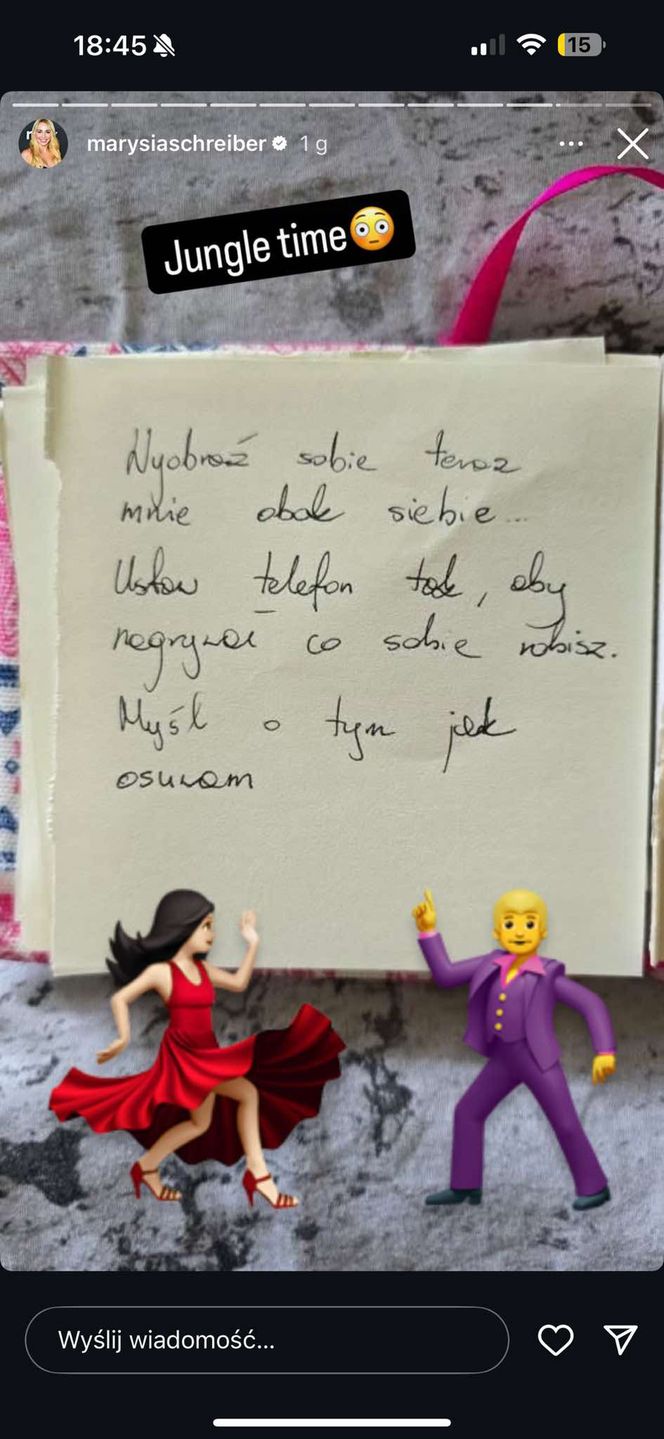 18:45
15
marysiaschreiber 1 g
Jungle time😳
Wyobraź sobie teraz
mnie obok siebie...
Ustaw telefon tak, aby
nagrywał co sobie robisz.
Myśl o tym jak
osuwam
Wyślij wiadomość...